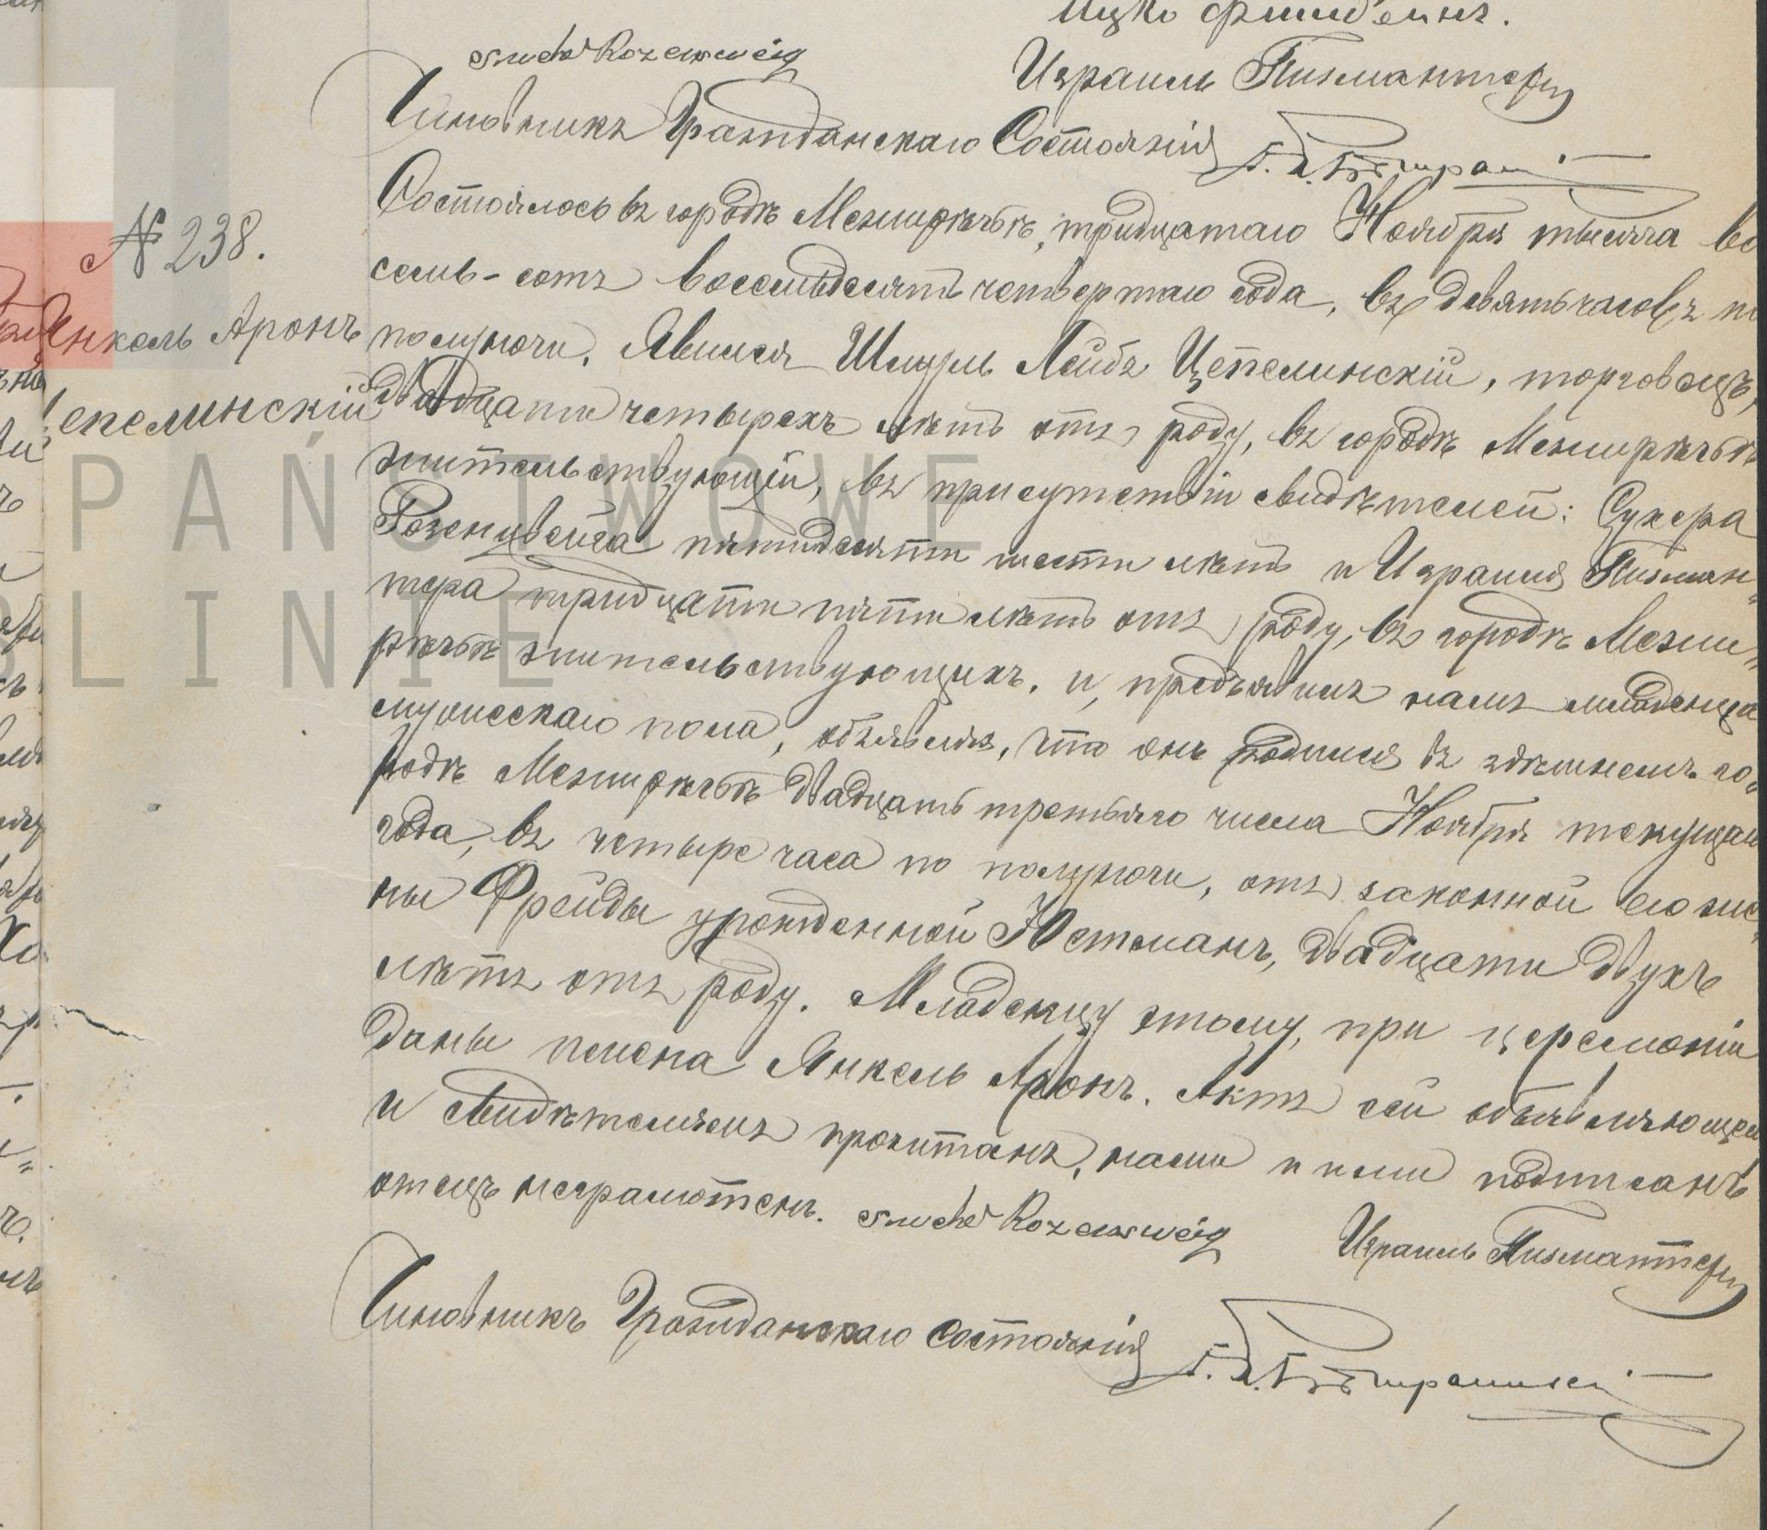 Ицко Фишбейнъ.
Sucher Rozenzweig
Израиль Пизмантеръ
Чиновникъ Гражданскаго Состоянія
Состоялось въ городѣ Мезширѣчьѣ, тридцатаго Ноября тысяча во
семь-сотъ восемьдесятъ четвертаго года, въ девять часовъ по
полуночи. Явился Шмуль Лейбъ Цепелинскій, торговецъ,
двадцати четырехъ лѣтъ отъ роду, въ городѣ Мезширѣчьѣ
жительствующій, въ присутствіи свидѣтелей: Сухера
Розенцвейга пятидесяти шести лѣтъ и Израиля Пизман-
тера тридцати пяти лѣтъ отъ роду, въ городѣ Мезши-
рѣчьѣ жительствующихъ, и предъявилъ намъ младенца
мужескаго пола, объявляя, что онъ родился въ здѣшнемъ го-
родѣ Мезширѣчьѣ двадцать третьяго числа Ноября текущаго
года, въ четыре часа по полуночи, отъ законной его же-
ны Фрейды урожденной Юстманъ, двадцати двухъ
лѣтъ отъ роду. Младенцу этому, при церемоніи
даны имена Янкель Аронъ. Актъ сей объявляющему
и свидѣтелямъ прочитанъ, нами и ними подписанъ
отецъ неграмотенъ. Sucher Rozenzweig Израиль Пизмантеръ
Чиновникъ Гражданскаго состоянія
№ 238.
Янкель Аронъ
Цепелинскій
PAŃSTWOWE
BLINIE